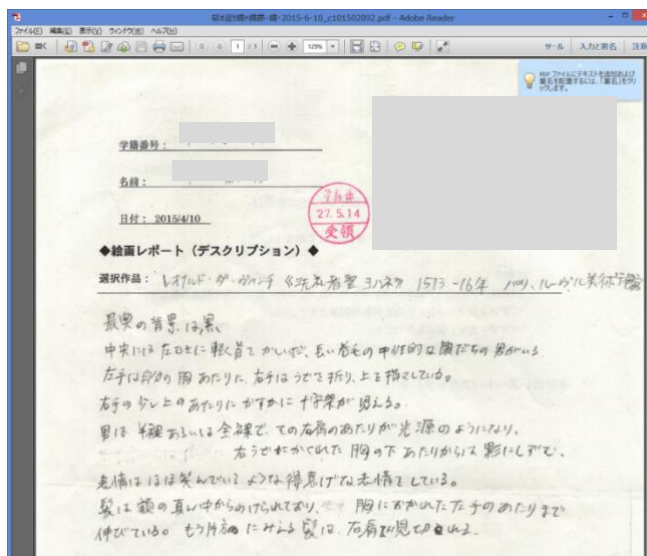 2015-6-10_c101502092.pdf - Adobe Reader
ファイル(F) 編集(E) 表示(V) ウィンドウ(W) ヘルプ(H)
1 / 1 125% ツール 入力と署名 注釈
PDF ファイルにテキストを追加および
署名を配置するには、「署名」をクリ
ックします。
学籍番号：
名前：
27.5.14
受領
日付： 2015/4/10
◆絵画レポート（デスクリプション）◆
選択作品： レオナルド・ダ・ヴィンチ 《洗礼者聖ヨハネ》 1513-16年 パリ、ルーヴル美術館
最奥の背景は黒。
中央には左ななめに軽く首をかしいだ、長い巻毛の中性的な顔だちの男がいる
左手は自分の胸あたりに、右手はうでを折り、上を指さしている。
右手の少し上のあたりにかすかに十字架が見える。
男は半裸あるいは全裸で、その右肩のあたりが光源のようになり、
右うでにかくれた胸の下あたりからは影にしずむ。
表情はほほ笑んでいるような得意げな表情をしている。
髪は額の真ん中からわけられており、胸におかれた左手のあたりまで
伸びている。もう片方にみえる髪は、右肩で見切れる。